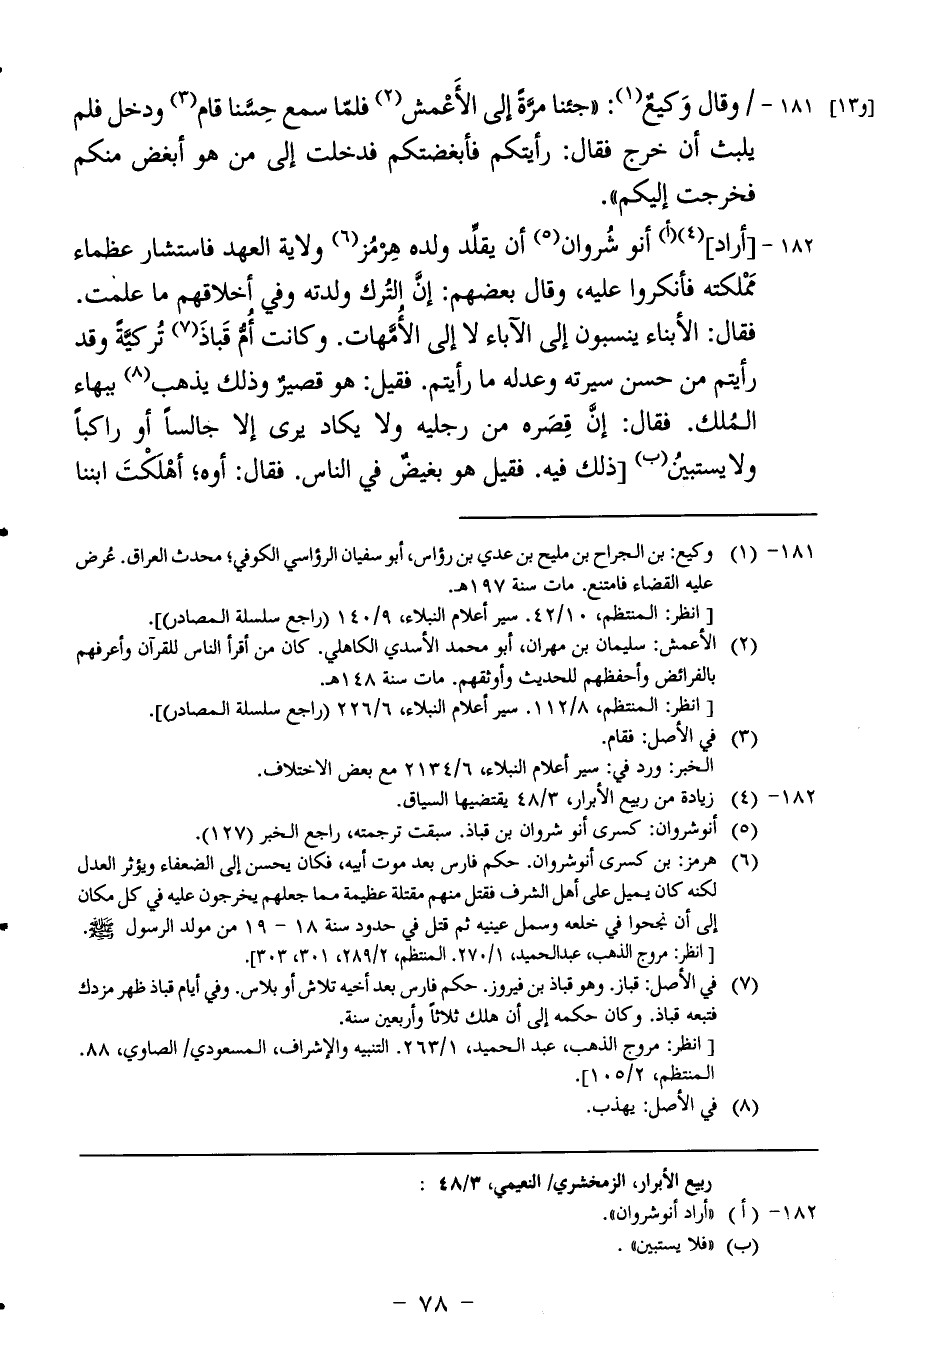 [و١٣] ١٨١ - / وقال وَكيعٌ(١): «جئنا مرَّةً إلى الأَعْمش(٢) فلمّا سمع حِسَّنا قام(٣) ودخل فلم
يلبث أن خرج فقال: رأيتكم فأبغضتكم فدخلت إلى من هو أبغض منكم
فخرجت إليكم».
١٨٢ - [أراد](٤)(أ) أنو شُروان(٥) أن يقلَّد ولده هِرْمُز(٦) ولاية العهد فاستشار عظماء
مَمْلكته فأنكروا عليه، وقال بعضهم: إنَّ التُرك ولدته وفي أخلاقهم ما علمت.
فقال: الأبناء ينسبون إلى الآباء لا إلى الأُمَّهات. وكانت أُمُّ قَباذَ(٧) تُركيَّةً وقد
رأيتم من حسن سيرته وعدله ما رأيتم. فقيل: هو قصيرٌ وذلك يذهب(٨) ببهاء
المُلك. فقال: إنَّ قِصَره من رجليه ولا يكاد يرى إلا جالساً أو راكباً
ولا يستبينُ(ب) [ذلك فيه. فقيل هو بغيضٌ في الناس. فقال: أوه؛ أهْلَكْتَ ابننا
١٨١- (١) وكيع: بن الجراح بن مليح بن عدي بن رؤاس، أبو سفيان الرؤاسي الكوفي؛ محدث العراق. عُرض
عليه القضاء فامتنع. مات سنة ١٩٧هـ.
[ انظر: المنتظم، ٤٢/١٠. سير أعلام النبلاء، ١٤٠/٩ (راجع سلسلة المصادر)].
(٢) الأعمش: سليمان بن مهران، أبو محمد الأسدي الكاهلي. كان من أقرأ الناس للقرآن وأعرفهم
بالفرائض وأحفظهم للحديث وأوثقهم. مات سنة ١٤٨هـ.
[ انظر: المنتظم، ١١٢/٨. سير أعلام النبلاء، ٢٢٦/٦ (راجع سلسلة المصادر)].
(٣) في الأصل: فقام.
الخبر: ورد في: سير أعلام النبلاء، ٢١٣٤/٦ مع بعض الاختلاف.
١٨٢- (٤) زيادة من ربيع الأبرار، ٤٨/٣ يقتضيها السياق.
(٥) أنوشروان: كسرى أنو شروان بن قباذ. سبقت ترجمته، راجع الخبر (١٢٧).
(٦) هرمز: بن كسرى أنوشروان. حكم فارس بعد موت أبيه، فكان يحسن إلى الضعفاء ويؤثر العدل
لكنه كان يميل على أهل الشرف فقتل منهم مقتلة عظيمة مما جعلهم يخرجون عليه في كل مكان
إلى أن نجحوا في خلعه وسمل عينيه ثم قتل في حدود سنة ١٨ - ١٩ من مولد الرسول ﷺ.
[ انظر: مروج الذهب، عبدالحميد، ٢٧٠/١. المنتظم، ٢٨٩/٢، ٣٠١، ٣٠٣].
(٧) في الأصل: قباز. وهو قباذ بن فيروز. حكم فارس بعد أخيه تلاش أو بلاس. وفي أيام قباذ ظهر مزدك
فتبعه قباذ. وكان حكمه إلى أن هلك ثلاثاً وأربعين سنة.
[ انظر: مروج الذهب، عبد الحميد، ٢٦٣/١. التنبيه والإشراف، المسعودي/ الصاوي، ٨٨.
المنتظم، ١٠٥/٢].
(٨) في الأصل: يهذب.
ربيع الأبرار، الزمخشري/ النعيمي، ٤٨/٣ :
١٨٢- (أ) «أراد أنوشروان».
(ب) «فلا يستبين» .
- ٧٨ -